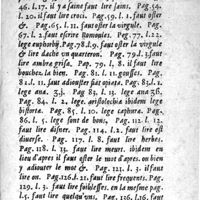 46. l. 17. il y a saine faut lire sains. Pag. 54.
l. 20. il faut lire crois. Pag. 59. l. 2. faut oster
&. Pag. 65. l. 11. faut oster la virgule. Pag.
67. l. 2. faut escrire Romoules. Pag. 77. l. 22.
lege euphorbij. Pag. 78. l. 9. faut oster la virgule
& lire dache un quarteron. Pag. 79. l. 3. faut
lire ambre grise. Pag. 79. l. 8. il faut lire
bouchez. la bien. Pag. 81. l. 11. gousses. Pag.
82. l. 11. faut adiouster faic opiata. Pag. 83. l.
lege ana. 3.j. Pag. 83. l. 13. lege ana
Pag. 84. l. 2. lege. aristolochia ibidem lege
bistorte. Pag. 85. l. 20. lege caphura. Pag.
86. l. 5. lege sont de bons. Pag. 112. l. 2.
faut lire disner. Pag. 114. l. 2. faut lire est
diverse. Pag. 117. l. 8. faut lire herbes.
Pag. 118. l. 13. faut lire meurt. ibidem en
lieu d'apres il faut oster le mot d'apres. on bien
y adiouter le mot &. Pag. 121. l. 3. il faut
lire on. Pag. 126. l. 21. faut lire frequents. Pag.
129. l. 3. faut lire foiblesses. en la mesme pag.
l. 5. faut lire quelqu'uns. Pag. 136. l. 16. faut